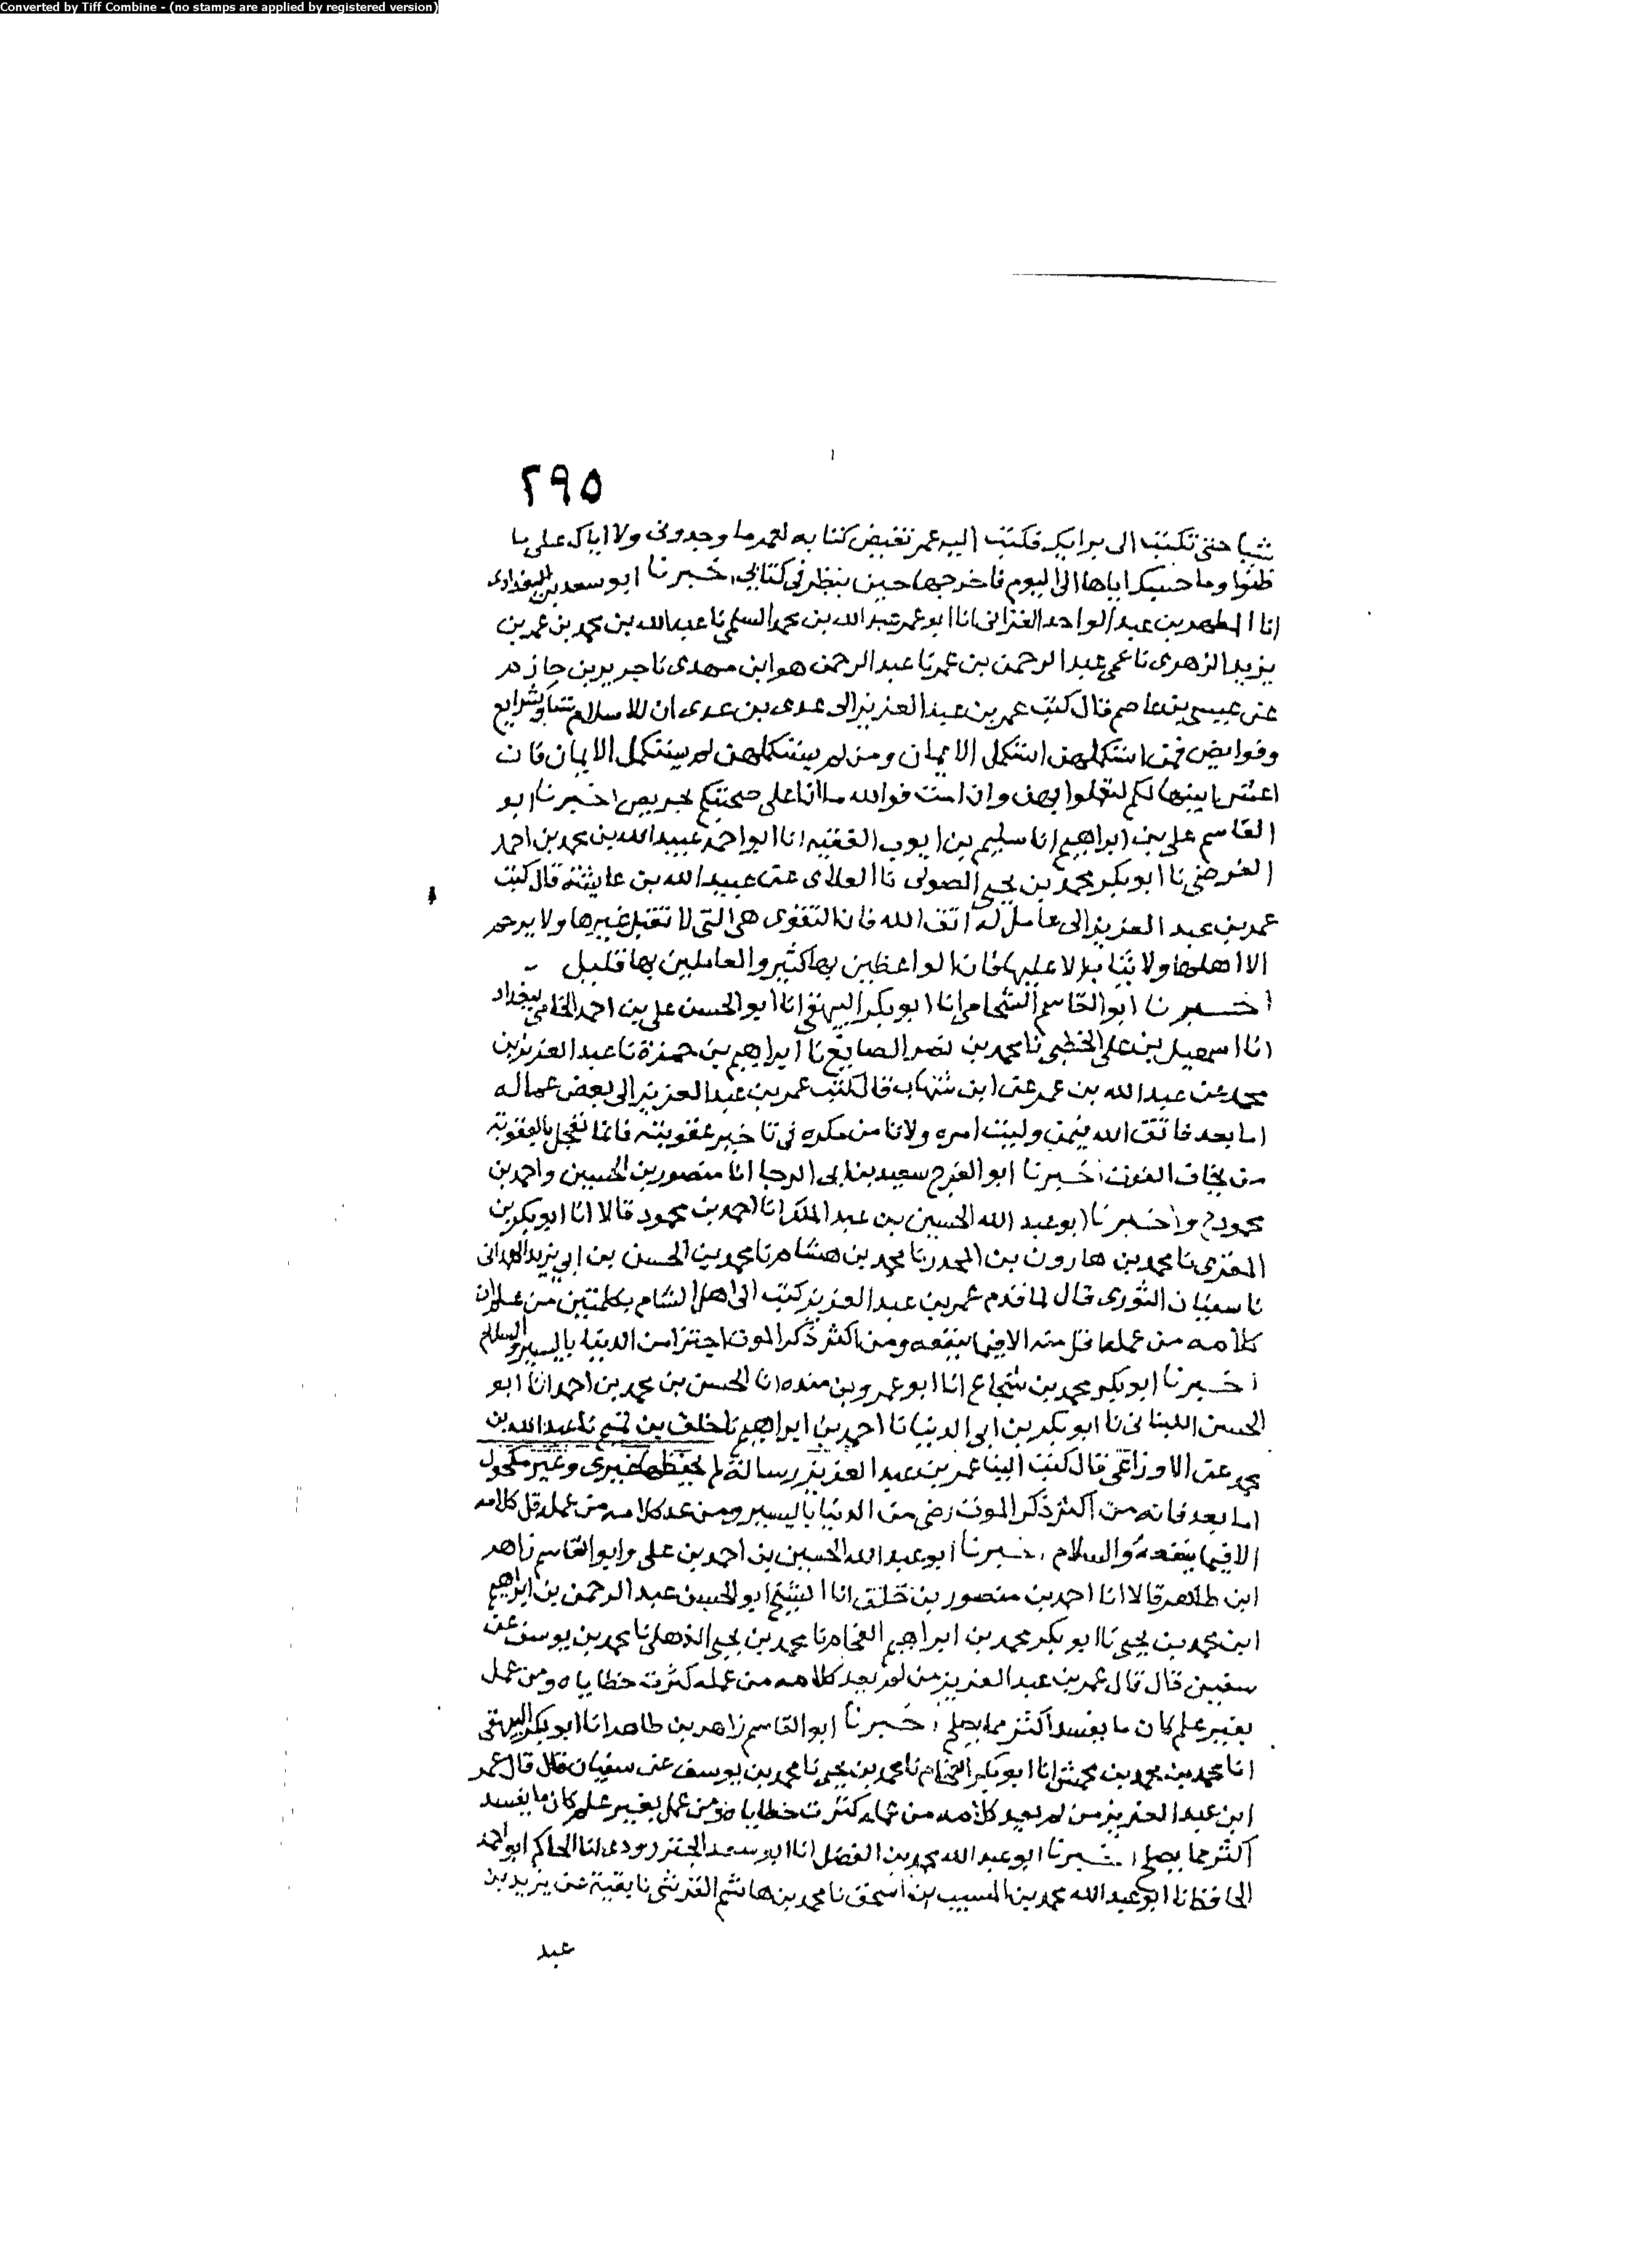 Converted by Tiff Combine - (no stamps are applied by registered version)
٢٩٥
شيا حتى تكتب الى برايك فكتب اليه عمر نقيض كتابه لعمر ما وجدونى ولا اياك على ما
ظنوا وما حبسك اياها الى اليوم فاخرجها حين ينظر فى كتابى اخبرنا ابو سعد بن البغدادى
انا المطهر بن عبد الواحد البزانى انا ابو عمر عبد الله بن محمد السلمى نا عبد الله بن محمد بن عمر بن
يزيد الزهرى نا عمى عبد الرحمن بن عمر نا عبد الرحمن هو ابن مهدى نا جرير بن حازم
عن عيسى بن عاصم قال كتب عمر بن عبد العزيز الى عدى بن عدى ان للاسلام سننا وشرايع
وفرايض فمن استكملهن استكمل الايمان ومن لم يستكملهن لم يستكمل الايمان فان
اعش ابينها لكم لتعملوا بهن وان امت فوالله ما انا على صحبتكم بحريص اخبرنا ابو
القاسم على بن ابراهيم انا سليم بن ايوب الفقيه انا ابو احمد عبيد الله بن محمد بن احمد
الفرضى نا ابو بكر محمد بن يحيى الصولى نا العلاى عن عبيد الله بن عايشة قال كتب
عمر بن عبد العزيز الى عامل له اتق الله فان التقوى هى التى لا تقبل غيرها ولا يرحم
الا اهلها ولا يثاب الا عليها فان الواعظين بها كثير والعاملين بها قليل
اخبرنا ابو القاسم الشحامى انا ابو بكر البيهقى انا ابو الحسن على بن احمد الحمامى ببغداد
انا اسمعيل بن على الخطبى نا محمد بن نصر الصايغ نا ابراهيم بن حمزة نا عبد العزيز بن
محمد عن عبيد الله بن عمر عن ابن شهاب قال كتب عمر بن عبد العزيز الى بعض عماله
اما بعد فاتق الله فيمن وليت امره ولا تامن مكره فى تاخير عقوبته فانما تعجل بالعقوبة
من يخاف الفوت اخبرنا ابو الفرج سعيد بن ابى الرجا انا منصور بن الحسين واحمد بن
محمود ح واخبرنا ابو عبد الله الحسين بن عبد الملك انا احمد بن محمود قالا انا ابو بكر بن
المقرى نا محمد بن هارون بن المجدر نا محمد بن هشام نا محمد بن الحسن بن ابى يزيد الهمدانى
نا سفيان الثورى قال لما قدم عمر بن عبد العزيز كتب الى اهل الشام بكلمتين من علم ان
كلامه من عمله قل منه الا فيما ينفعه ومن اكثر ذكر الموت اجتزا من الدنيا باليسير والسلام
اخبرنا ابو بكر محمد بن شجاع انا ابو عمرو بن منده انا الحسن بن محمد بن احمد انا ابو
الحسن اللبنانى نا ابو بكر بن ابى الدنيا نا احمد بن ابراهيم نا خلف بن تميم نا عبد الله بن
محمد عن الاوزاعى قال كتب الينا عمر بن عبد العزيز رسالة لم يحفظها غيرى وغير مكحول
اما بعد فانه من اكثر ذكر الموت رضى من الدنيا باليسير ومن عد كلامه من عمله قل كلامه
الا فيما ينفعه والسلام اخبرنا ابو عبد الله الحسين بن احمد بن على وابو القاسم زاهر
ابن طاهر قالا انا احمد بن منصور بن خلف انا الشيخ ابو الحسن عبد الرحمن بن ابراهيم
ابن محمد بن يحيى نا ابو بكر محمد بن ابراهيم الفحام نا محمد بن يحيى الذهلى نا محمد بن يوسف عن
سفين قال قال عمر بن عبد العزيز من لم يعد كلامه من عمله كثرت خطاياه ومن عمل
بغير علم كان ما يفسد اكثر مما يصلح اخبرنا ابو القاسم زاهر بن طاهر انا ابو بكر البيهقى
انا محمد بن محمد بن محمش انا ابو بكر الفحام نا محمد بن يحيى نا محمد بن يوسف عن سفيان قال قال عمر
ابن عبد العزيز من لم يعد كلامه من عمله كثرت خطاياه ومن عمل بغير علم كان ما يفسد
اكثر مما يصلح اخبرنا ابو عبد الله محمد بن الفضل انا ابو سعد الجنزرودى انا الحاكم ابو احمد
الحافظ انا ابو عبد الله محمد بن المسيب بن اسحق نا محمد بن هاشم القرشى نا بقية عن يزيد بن
عبد